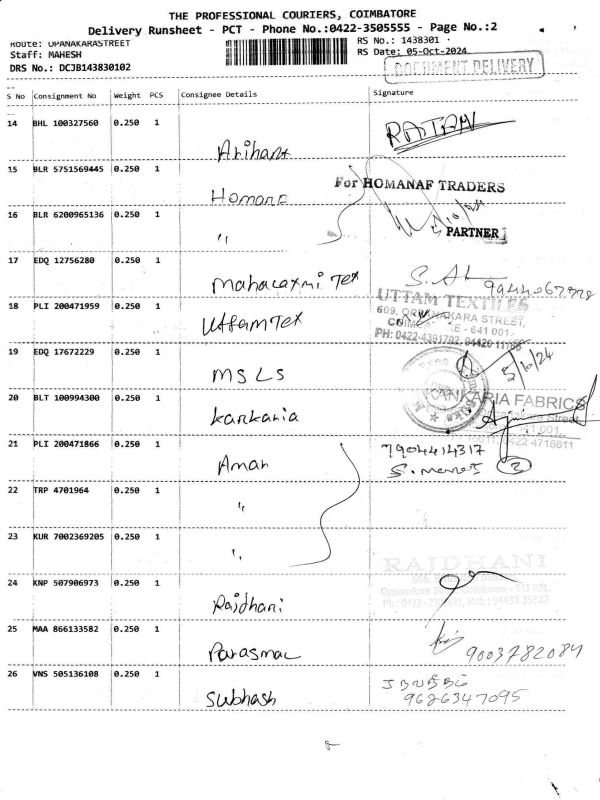 THE PROFESSIONAL COURIERS, COIMBATORE
Delivery Runsheet - PCT - Phone No.:0422-3505555 - Page No.:2
Route: OPANAKARASTREET
RS No.: 1438301
Staff: MAHESH
RS Date: 05-Oct-2024
DRS No.: DCJB143830102
DOCUMENT DELIVERY
S No Consignment No Weight PCS Consignee Details Signature
14 BHL 100327560 0.250 1
RATAN
Arihant
15 BLR 5751569445 0.250 1
For HOMANAF TRADERS
Homana
16 BLR 6200965136 0.250 1
PARTNER
"
17 EDQ 12756280 0.250 1
Mahalaxmi Tex
18 PLI 200471959 0.250 1
UTTAM TEXTILES
609, OPPANAKARA STREET,
641 001.
PH: 0422-4391702,
Uttam Tex
19 EDQ 17672229 0.250 1
MSLS
20 BLT 100994300 0.250 1
KANKARIA FABRICS
Street
0422 4716611
Kankaria
21 PLI 200471866 0.250 1
7904414317
Aman
22 TRP 4701964 0.250 1
"
23 KUR 7002369205 0.250 1
"
RAJDHANI
24 KNP 507906973 0.250 1
Rajdhani
25 MAA 866133582 0.250 1
Parasmal
9003782084
26 VNS 505136108 0.250 1
Subhash
9626347095